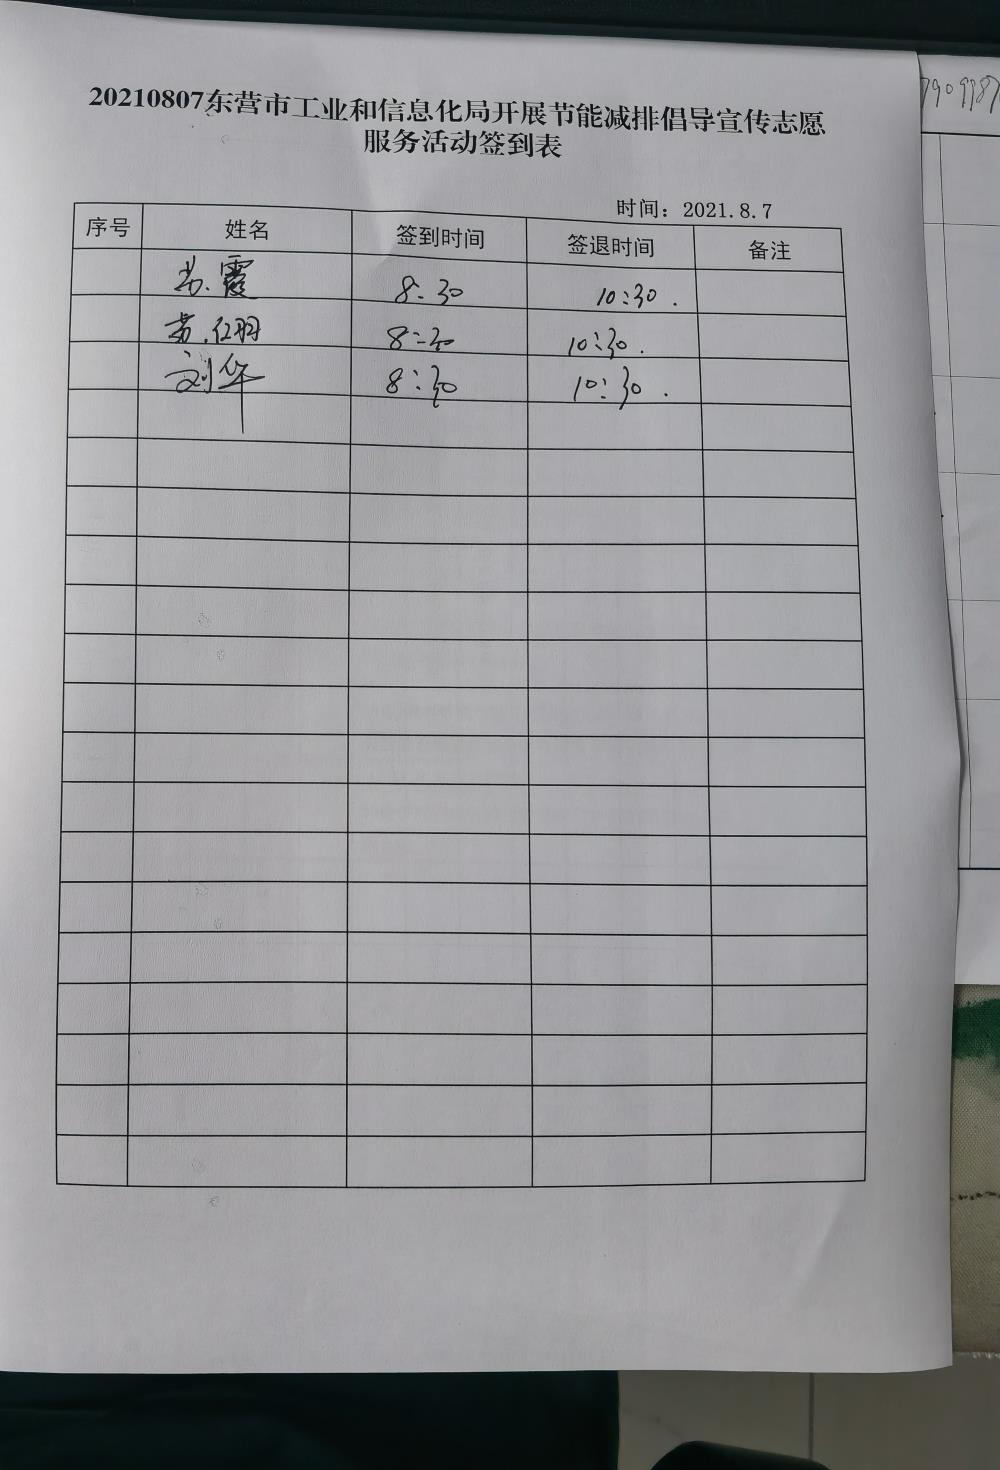 20210807东营市工业和信息化局开展节能减排倡导宣传志愿
服务活动签到表
时间：2021.8.7
序号 姓名 签到时间 签退时间 备注
苏霞 8:30 10:30.
苏红羽 8:30 10:30.
刘华 8:30 10:30.